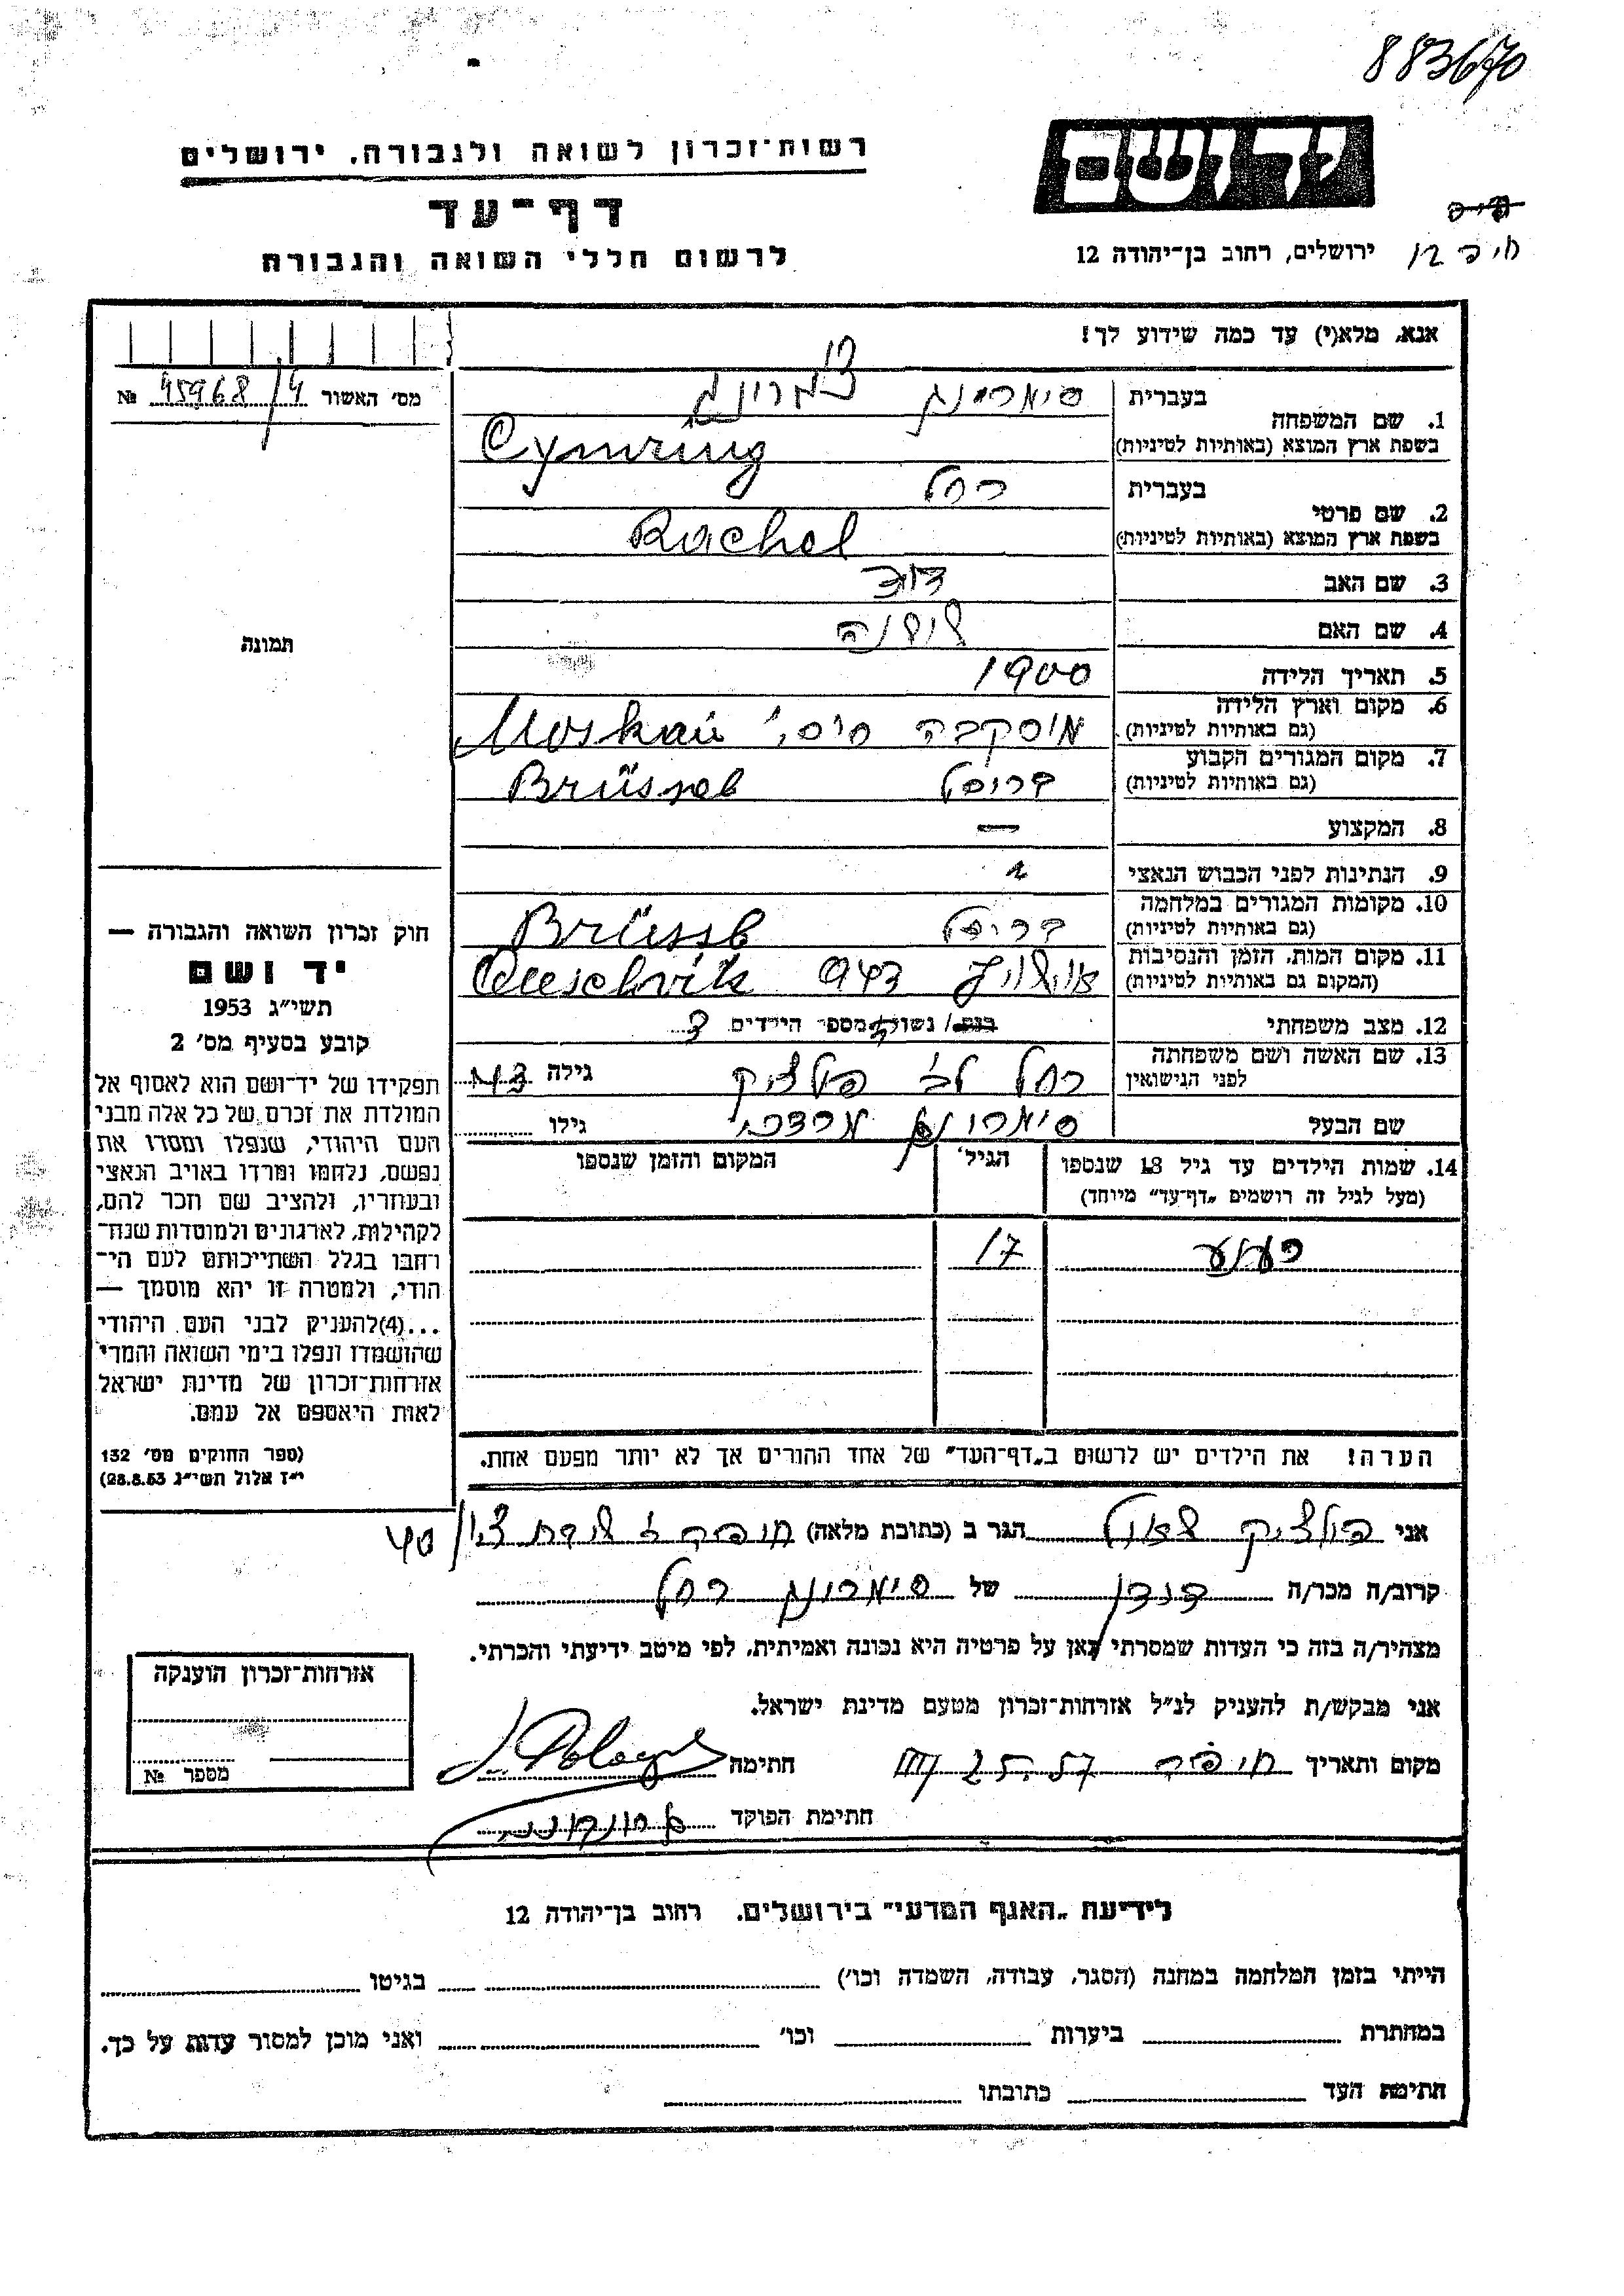 883670
רשות־זכרון לשואה ולגבורה, ירושלים
דף־עד
לרשום חללי השואה והגבורה
ידושם
ירושלים, רחוב בן־יהודה 12
אנא, מלא(י) עד כמה שידוע לך!
מס׳ האשור 45968/4 №
1. שם המשפחה
בעברית סימרינג צימרינג
בשפת ארץ המוצא (באותיות לטיניות) Cymring
2. שם פרטי
בעברית רחל
בשפת ארץ המוצא (באותיות לטיניות) Rachel
3. שם האב דוד
4. שם האם
5. תאריך הלידה 1900
6. מקום וארץ הלידה
(גם באותיות לטיניות) מוסקבה Moskau
7. מקום המגורים הקבוע
(גם באותיות לטיניות) בריסל Brüssel
8. המקצוע —
9. הנתינות לפני הכבוש הנאצי
10. מקומות המגורים במלחמה
(גם באותיות לטיניות) בריסל Brüssl
11. מקום המות, הזמן והנסיבות
(המקום גם באותיות לטיניות) אושויץ
12. מצב משפחתי נשוי/ה מספר הילדים
13. שם האשה ושם משפחתה
לפני הנישואין רחל לב׳ פולציק גילה 43
שם הבעל סימרונג מרדכי גילו
14. שמות הילדים עד גיל 18 שנספו
(מעל לגיל זה רושמים „דף־עד״ מיוחד)
הגיל
המקום והזמן שנספו
17
הערה! את הילדים יש לרשום ב„דף־העד״ של אחד ההורים אך לא יותר מפעם אחת.
תמונה
חוק זכרון השואה והגבורה —
יד ושם
תשי״ג 1953
קובע בסעיף מס׳ 2
תפקידו של יד־ושם הוא לאסוף אל
המולדת את זכרם של כל אלה מבני
העם היהודי, שנפלו ומסרו את
נפשם, נלחמו ומרדו באויב הנאצי
ובעוזריו, ולהציב שם וזכר להם,
לקהילות, לארגונים ולמוסדות שנח־
רחבו בגלל השתייכותם לעם הי־
הודי, ולמטרה זו יהא מוסמך —
...(4)להעניק לבני העם היהודי
שהושמדו ונפלו בימי השואה והמרי
אזרחות־זכרון של מדינת ישראל
לאות היאספם אל עמם.
(ספר החוקים מס׳ 132
י״ז אלול תשי״ג 28.8.53)
אני פולציק שאול הגר ב (כתובת מלאה) חיפה
קרוב/ה מכר/ה של סימרונג רחל
מצהיר/ה בזה כי העדות שמסרתי כאן על פרטיה היא נכונה ואמיתית, לפי מיטב ידיעתי והכרתי.
אני מבקש/ת להעניק לנ״ל אזרחות־זכרון מטעם מדינת ישראל.
מקום ותאריך חיפה חתימה
חתימת הפוקד
אזרחות־זכרון הוענקה
מספר №
לידיעת „האגף המדעי״ בירושלים, רחוב בן־יהודה 12
הייתי בזמן המלחמה במחנה (הסגר, עבודה, השמדה וכו׳) בגיטו
במחתרת ביערות וכו׳ ואני מוכן למסור עדות על כך.
חתימת העד כתובתו